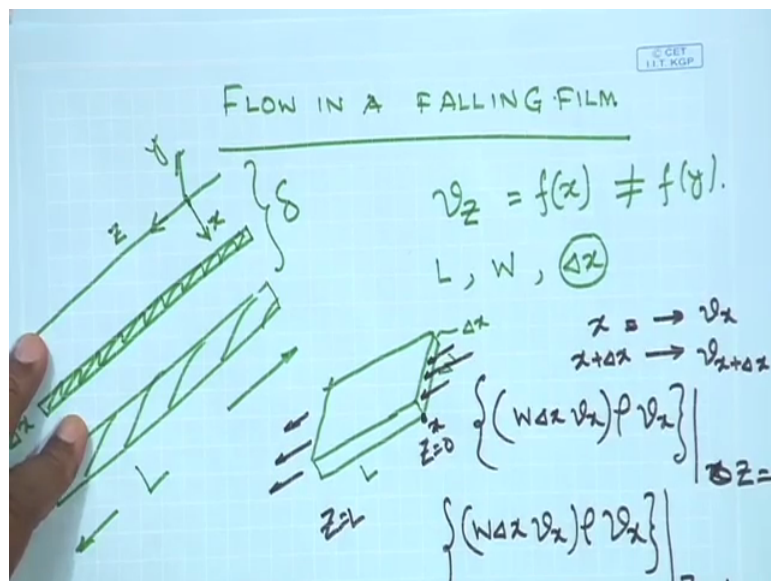 © CET
I.I.T. KGP
FLOW IN A FALLING FILM
y
z
x
δ
v_z = f(x) ≠ f(y).
L, W, Δx
x = → v_x
x+Δx → v_{x+Δx}
Δx
Δx
x
z=0
{(WΔx v_x) ρ v_x}|
z=
L
L
z=L
{(WΔx v_x) ρ v_x}|